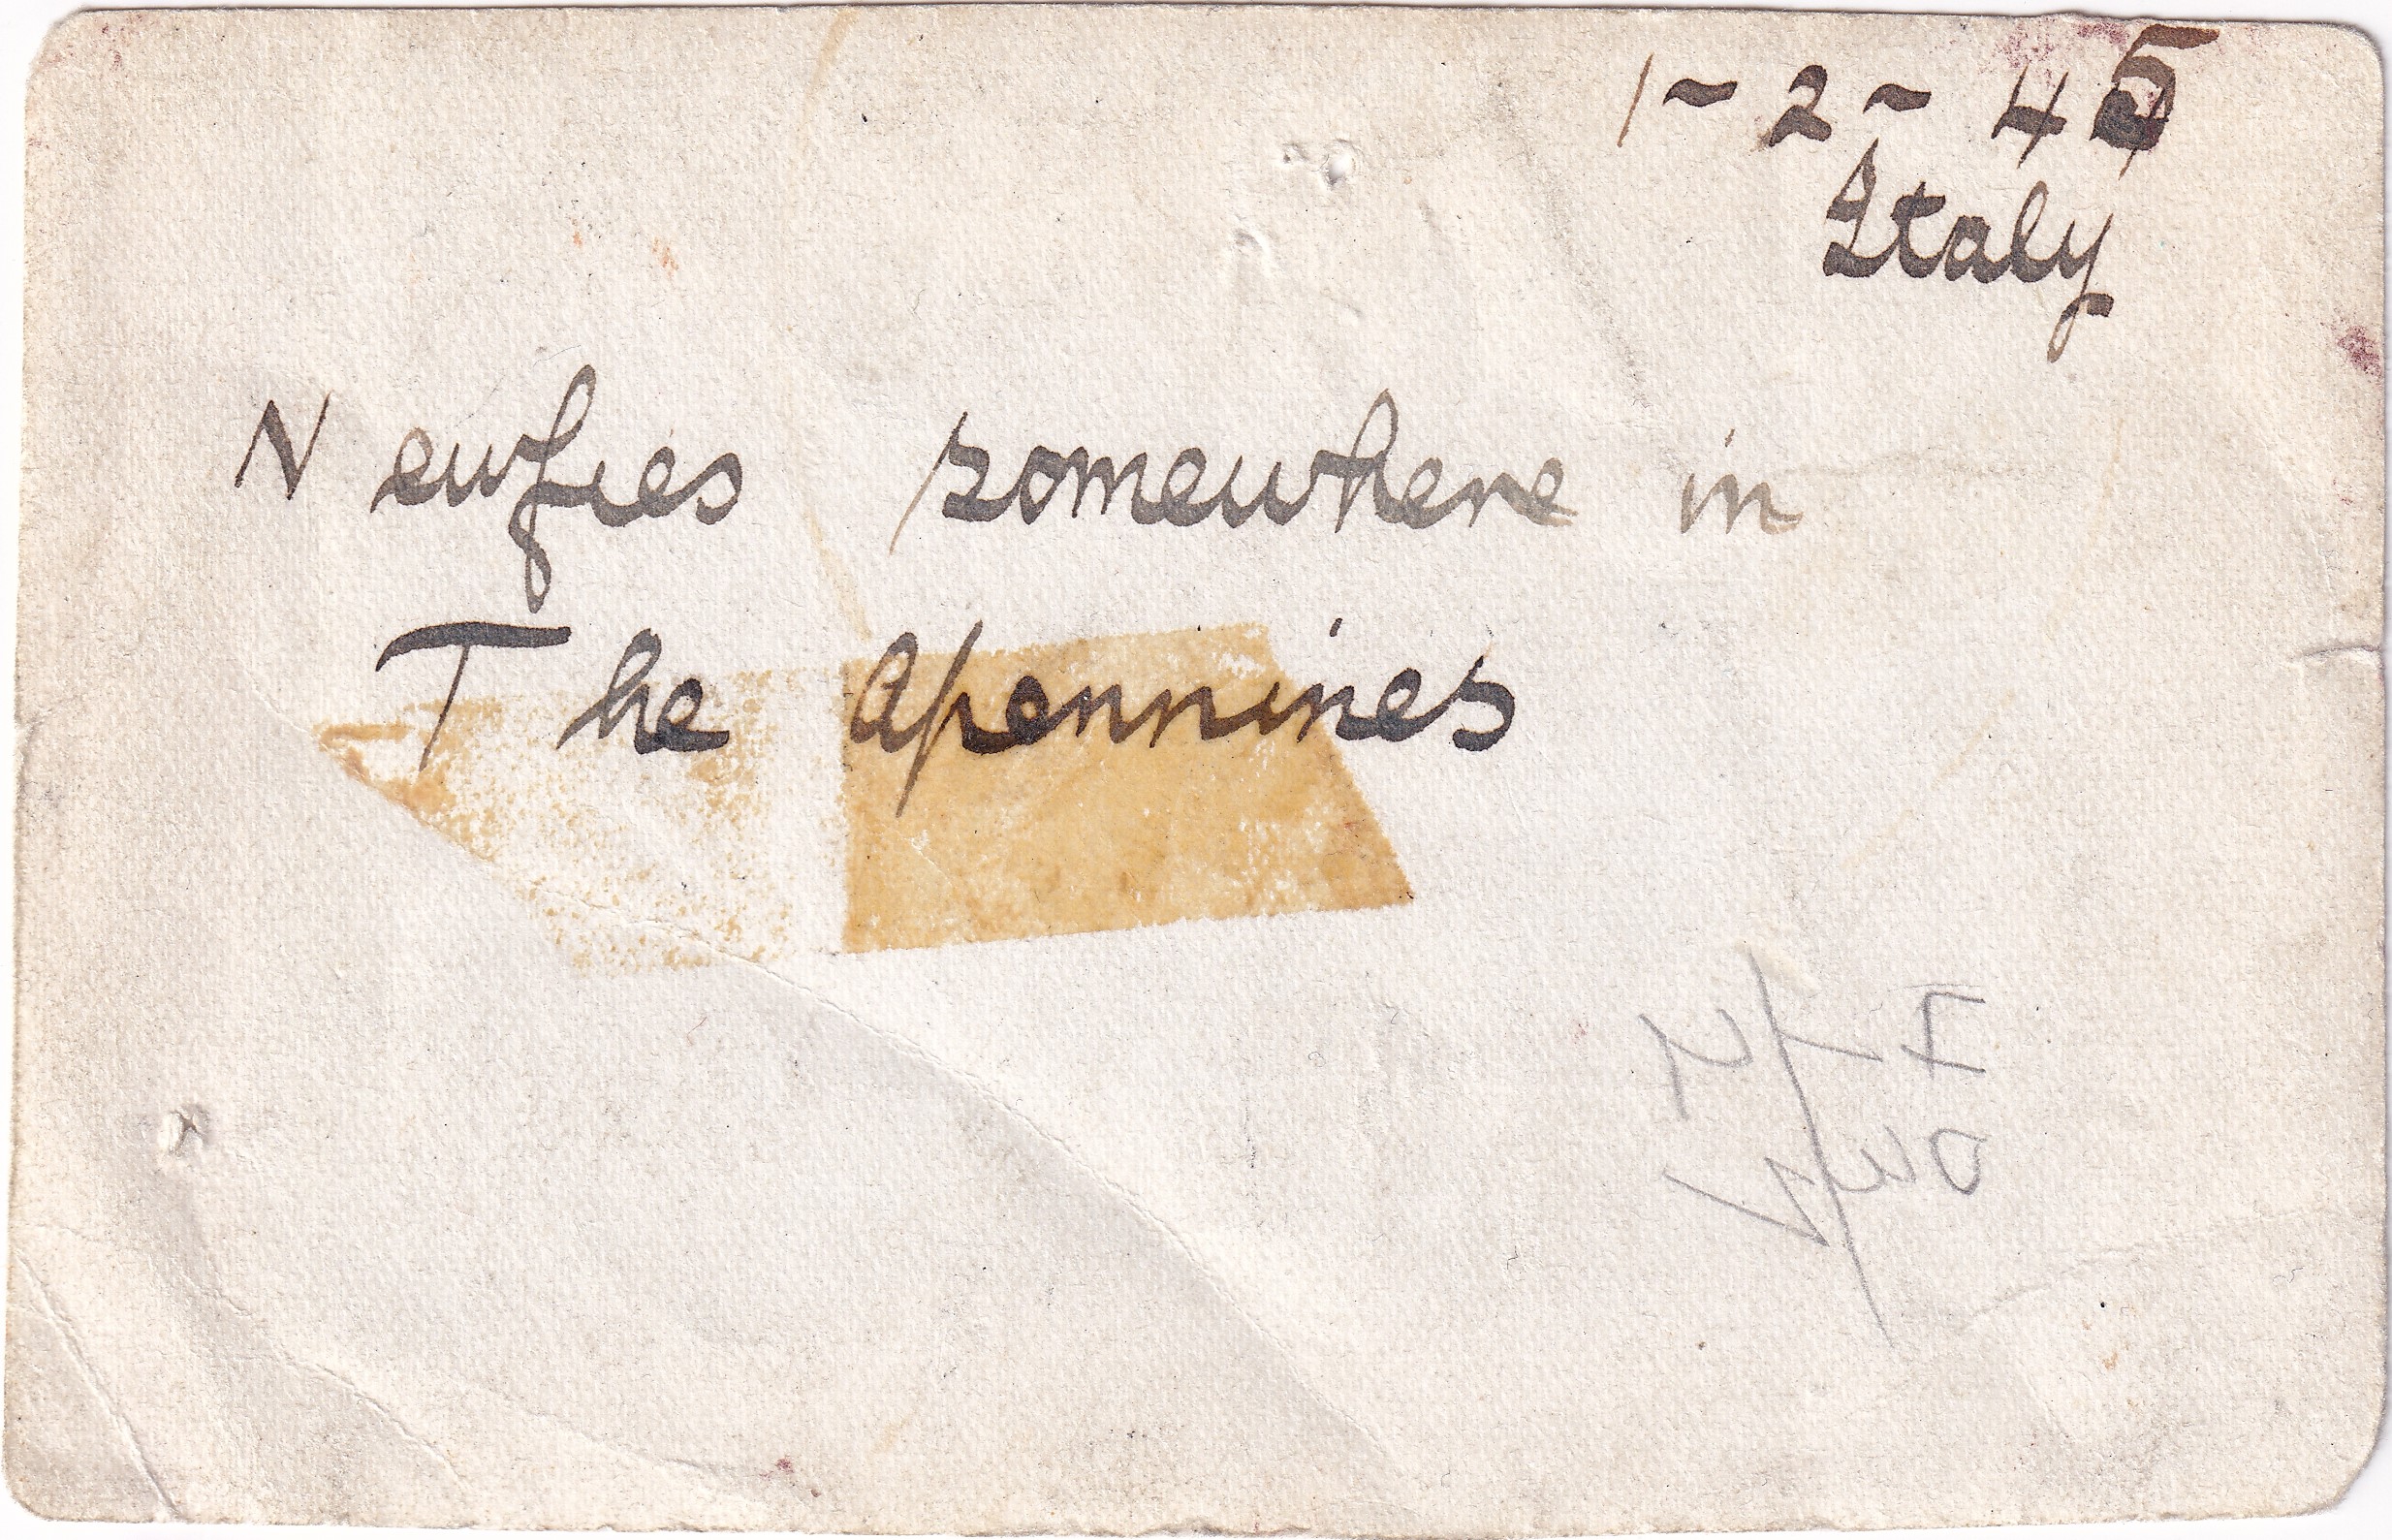 1-2-45
Italy
Newfies somewhere in
The Apennines